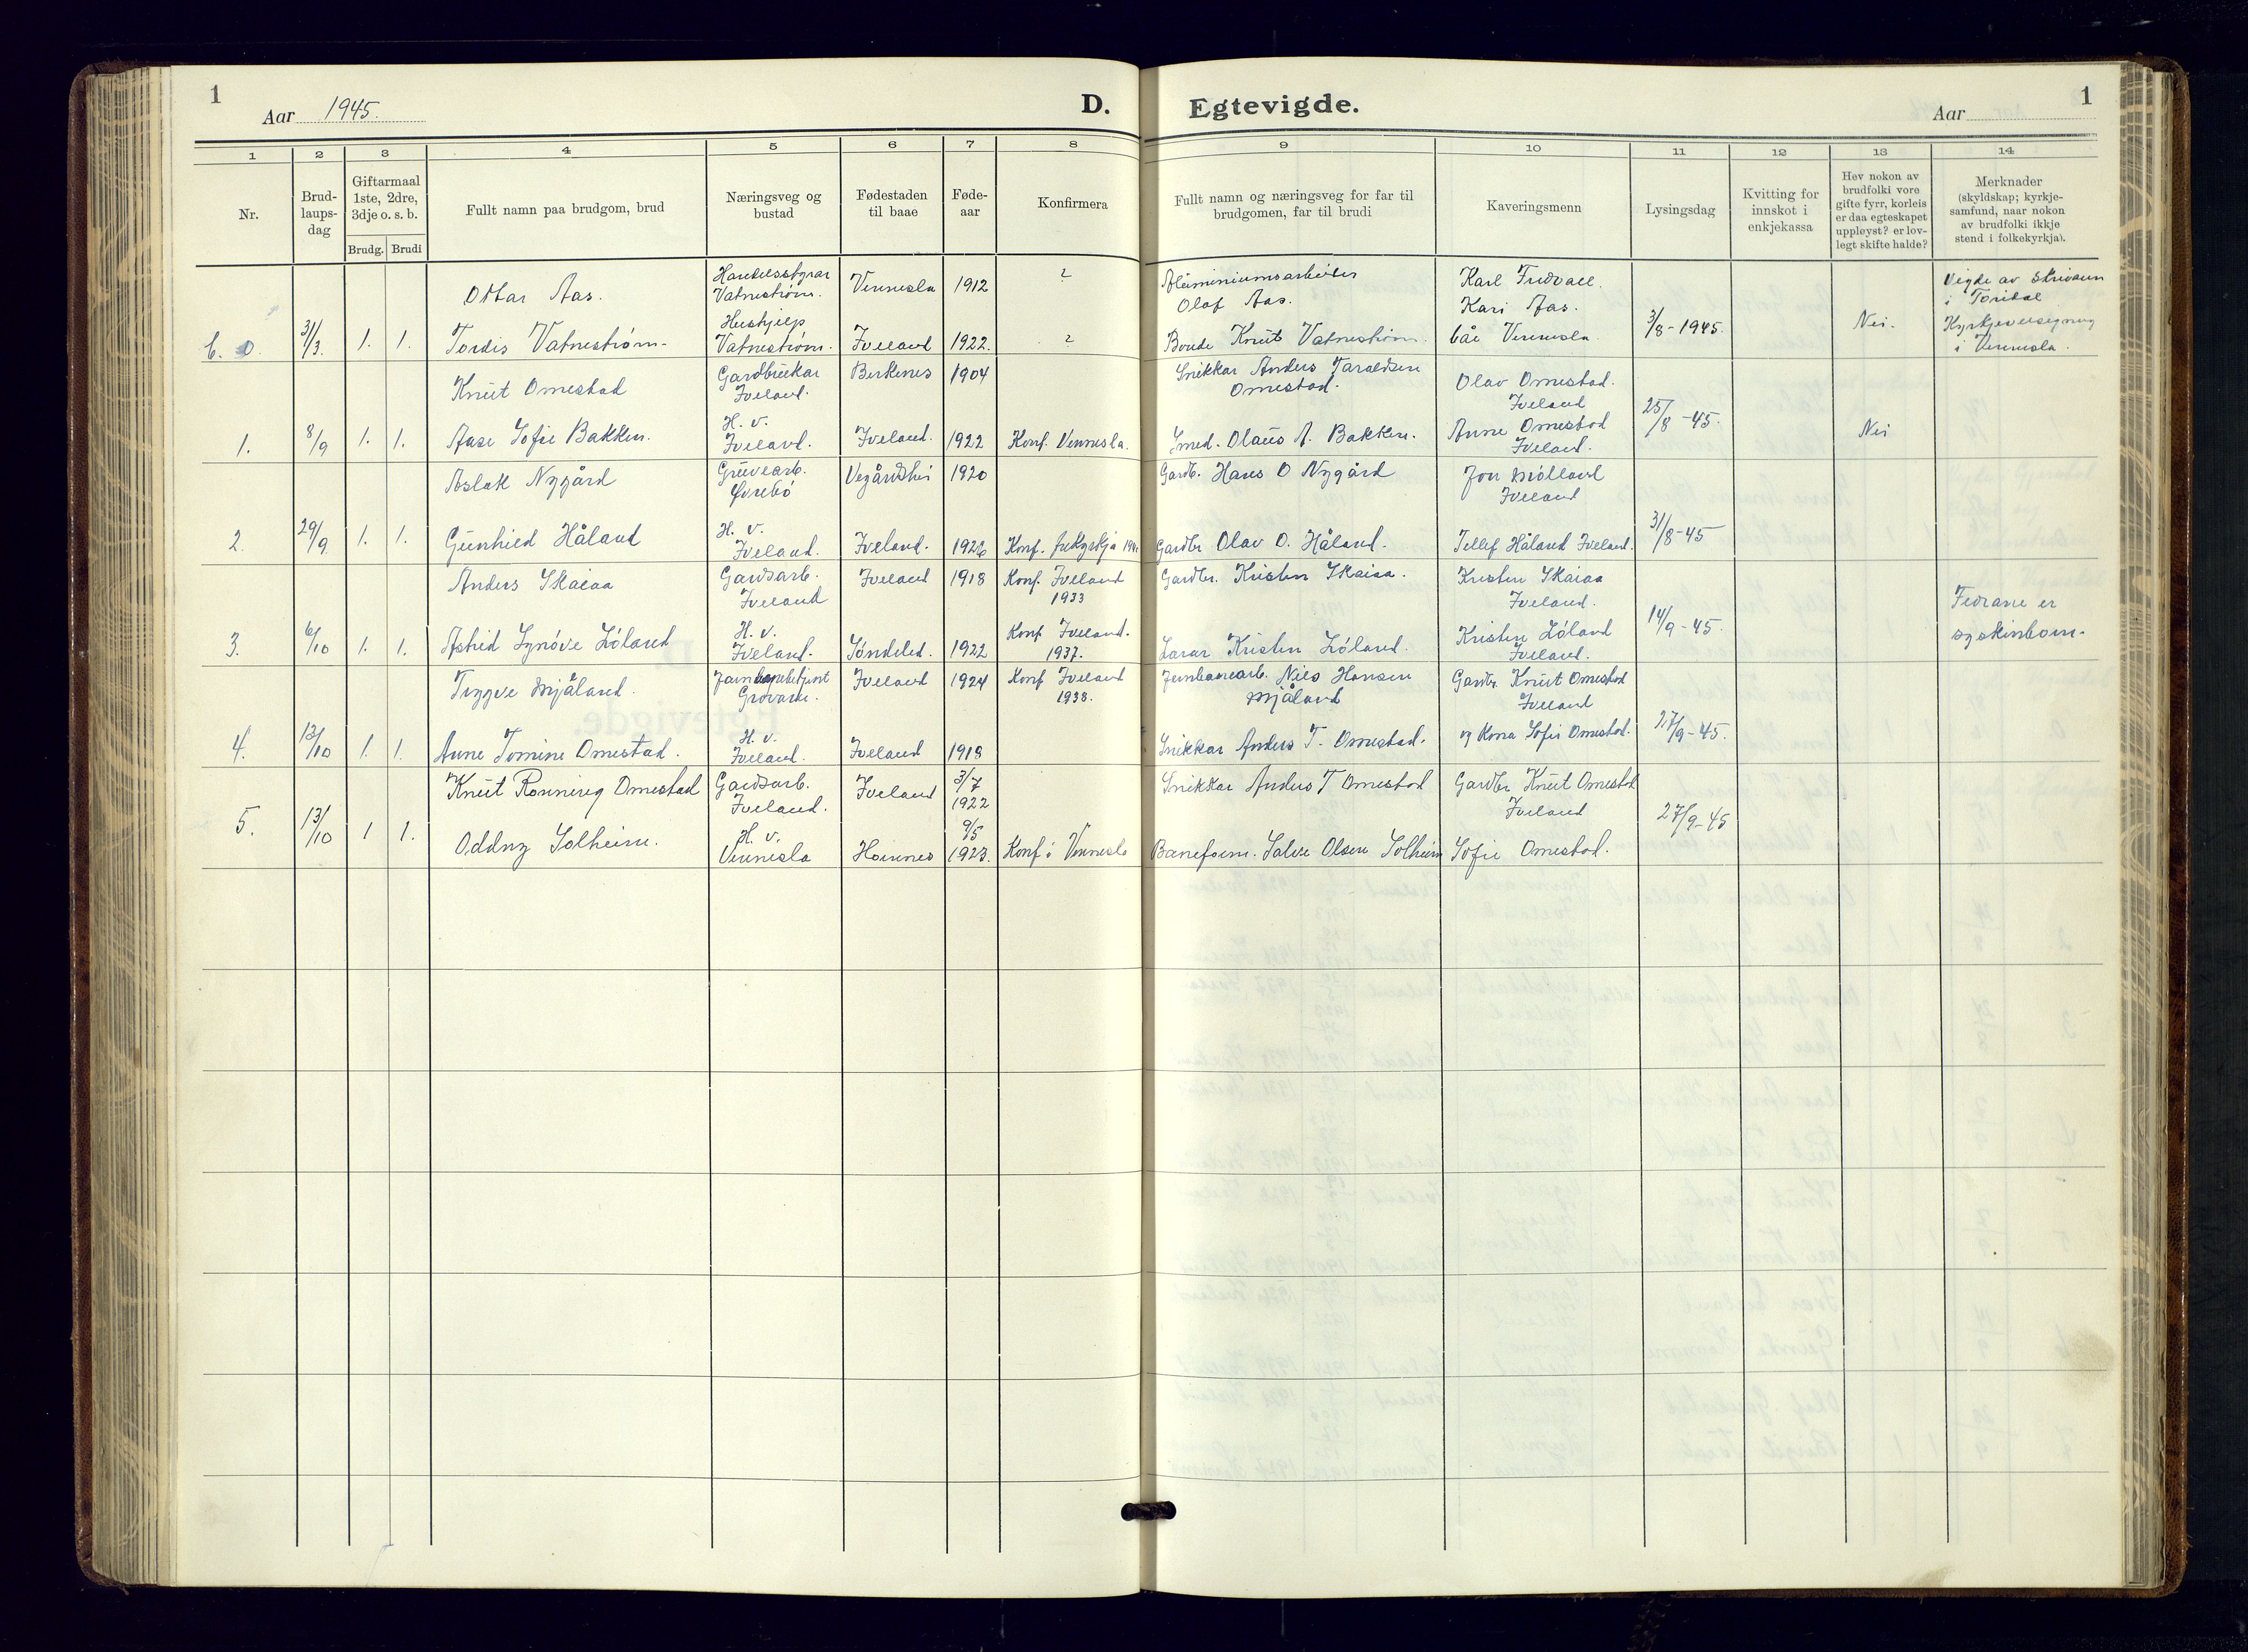 1
Aar 1945.
D.
Egtevigde.
Aar
1
1 2 3 4 5 6 7 8 9 10 11 12 13 14
Nr.
Brud-
laups-
dag
Giftarmaal
1ste, 2dre,
3dje o. s. b.
Brudg. Brudi
Fullt namn paa brudgom, brud
Næringsveg og
bustad
Fødestaden
til baae
Føde-
aar
Konfirmera
Fullt namn og næringsveg for far til
brudgomen, far til brudi
Kaveringsmenn
Lysingsdag
Kvitting for
innskot i
enkjekassa
Hev nokon av
brudfolki vore
gifte fyrr, korleis
er daa egteskapet
uppløyst? er lov-
legt skifte halde?
Merknader
(skyldskap; kyrkje-
samfund, naar nokon
av brudfolki ikkje
stend i folkekyrkja).
Ottar Aas.
Handelsstyrar
Vatnestrøm.
Vennesla
1912
?
Aluminiumsarbeider
Olaf Aas.
Karl Tredvall.
Kari Aas.
Vigde av Skrivaren
i Toridal
31/3. 1. 1.
Tordis Vatnestrøm.
Hushjelp
Vatnestrøm.
Iveland
1922.
?
Bonde Knut Vatnestrøm.
båe Vennesla.
3/8-1945.
Nei.
Kyrkjevelsigning
i Vennesla.
Knut Omestad
Gardbrukar
Iveland.
Birkenes
1904
Snikkar Anders Taraldsen
Omestad.
Olav Omestad.
Iveland
1. 8/9 1. 1.
Aase Sofie Bakken.
H. v.
Iveland.
Iveland.
1922
Konf. Vennesla.
Smed. Olaus A. Bakken.
Anne Omestad
Iveland.
25/8-45.
Nei
Aslak Nygård
Gruvearb.
Øvrebö
Vegårdshei
1920
Gardb. Hans O Nygård
Jon Mölland
Iveland
2. 29/9 1. 1.
Gunhild Håland
H. v.
Iveland.
Iveland.
1926
Konf.
Gardbr Olav O. Håland.
Tellef Håland Iveland.
31/8-45
Anders Skaiaa
Gardsarb.
Iveland
Iveland
1918
Konf. Iveland
1933
Gardbr. Kristen Skaiaa.
Kristen Skaiaa
Iveland.
3. 6/10 1. 1.
Astrid Synöve Löland
H. v.
Iveland.
Söndeled.
1922
Konf Iveland.
1937.
Lærar Kristen Löland.
Kristen Löland
Iveland.
14/9-45.
Fedrane er
syskinborn.
Trygve Mjåland.
Grovane.
Iveland
1924
Konf Iveland
1938.
Jernbanearb. Nils Hansen
Mjåland
Gardbr. Knut Omestad
Iveland
4. 13/10 1. 1.
Anne Tomine Omestad.
H. v.
Iveland.
Iveland
1918
Snikkar Anders T. Omestad.
og Kona Sofie Omestad.
27/9-45.
Knut Rønning Omestad
Gardsarb.
Iveland.
Iveland
3/7
1922
Snikkar Anders T Omestad
Gardbr Knut Omestad
Iveland
5. 13/10 1 1.
Oddny Solheim.
H. v.
Vennesla
Hornnes
9/5
1923.
Konf i Vennesla
Baneform. Salve Olsen Solheim
Sofie Omestad.
27/9-45